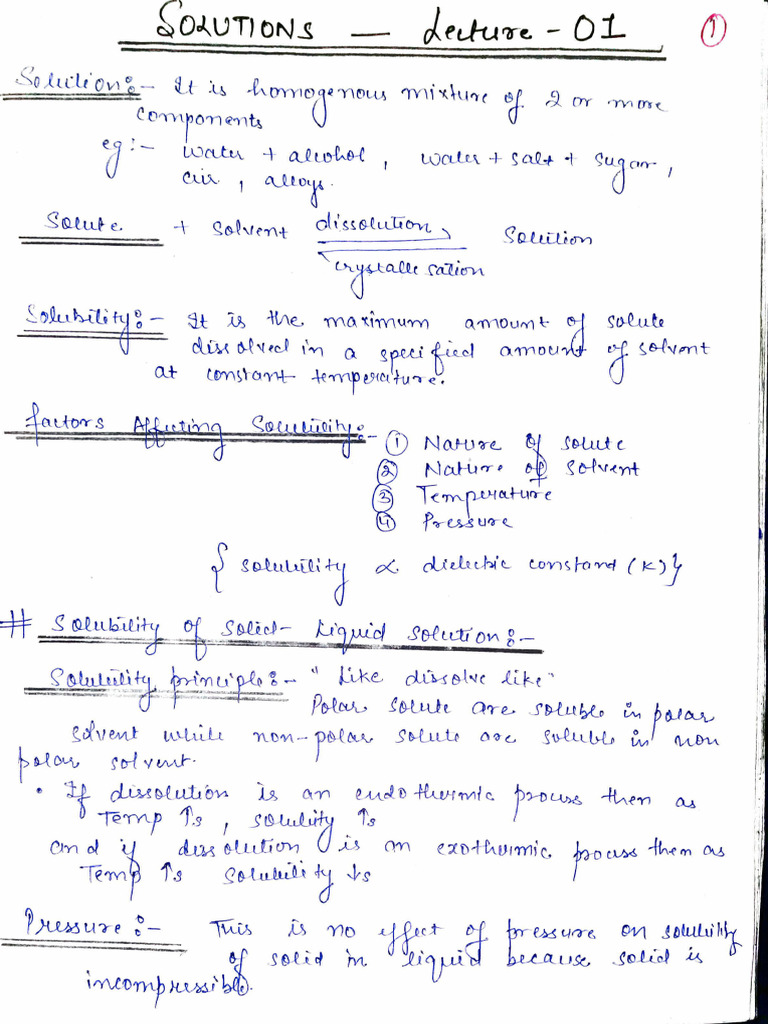 SOLUTIONS — Lecture - 01
1
Solution:- It is homogenous mixture of 2 or more
components
eg:- water + alcohol, water + salt + sugar,
air, alloys.
Solute + solvent dissolution Solution
crystallisation
Solubility:- It is the maximum amount of solute
dissolved in a specified amount of solvent
at constant temperature.
factors Affecting Solubility:- ① Nature of solute
② Nature of solvent
③ Temperature
④ Pressure
{ solubility ∝ dielectric constant (K)}
# Solubility of solid- Liquid solution:-
Solubility principle:- "Like dissolve like"
Polar solute are soluble in polar
solvent while non-polar solute are soluble in non
polar solvent.
• If dissolution is an endothermic process then as
Temp ↑s, solubility ↑s
and if dissolution is an exothermic process then as
Temp ↑s solubility ↓s
Pressure:- This is no effect of pressure on solubility
of solid in liquid because solid is
incompressible.